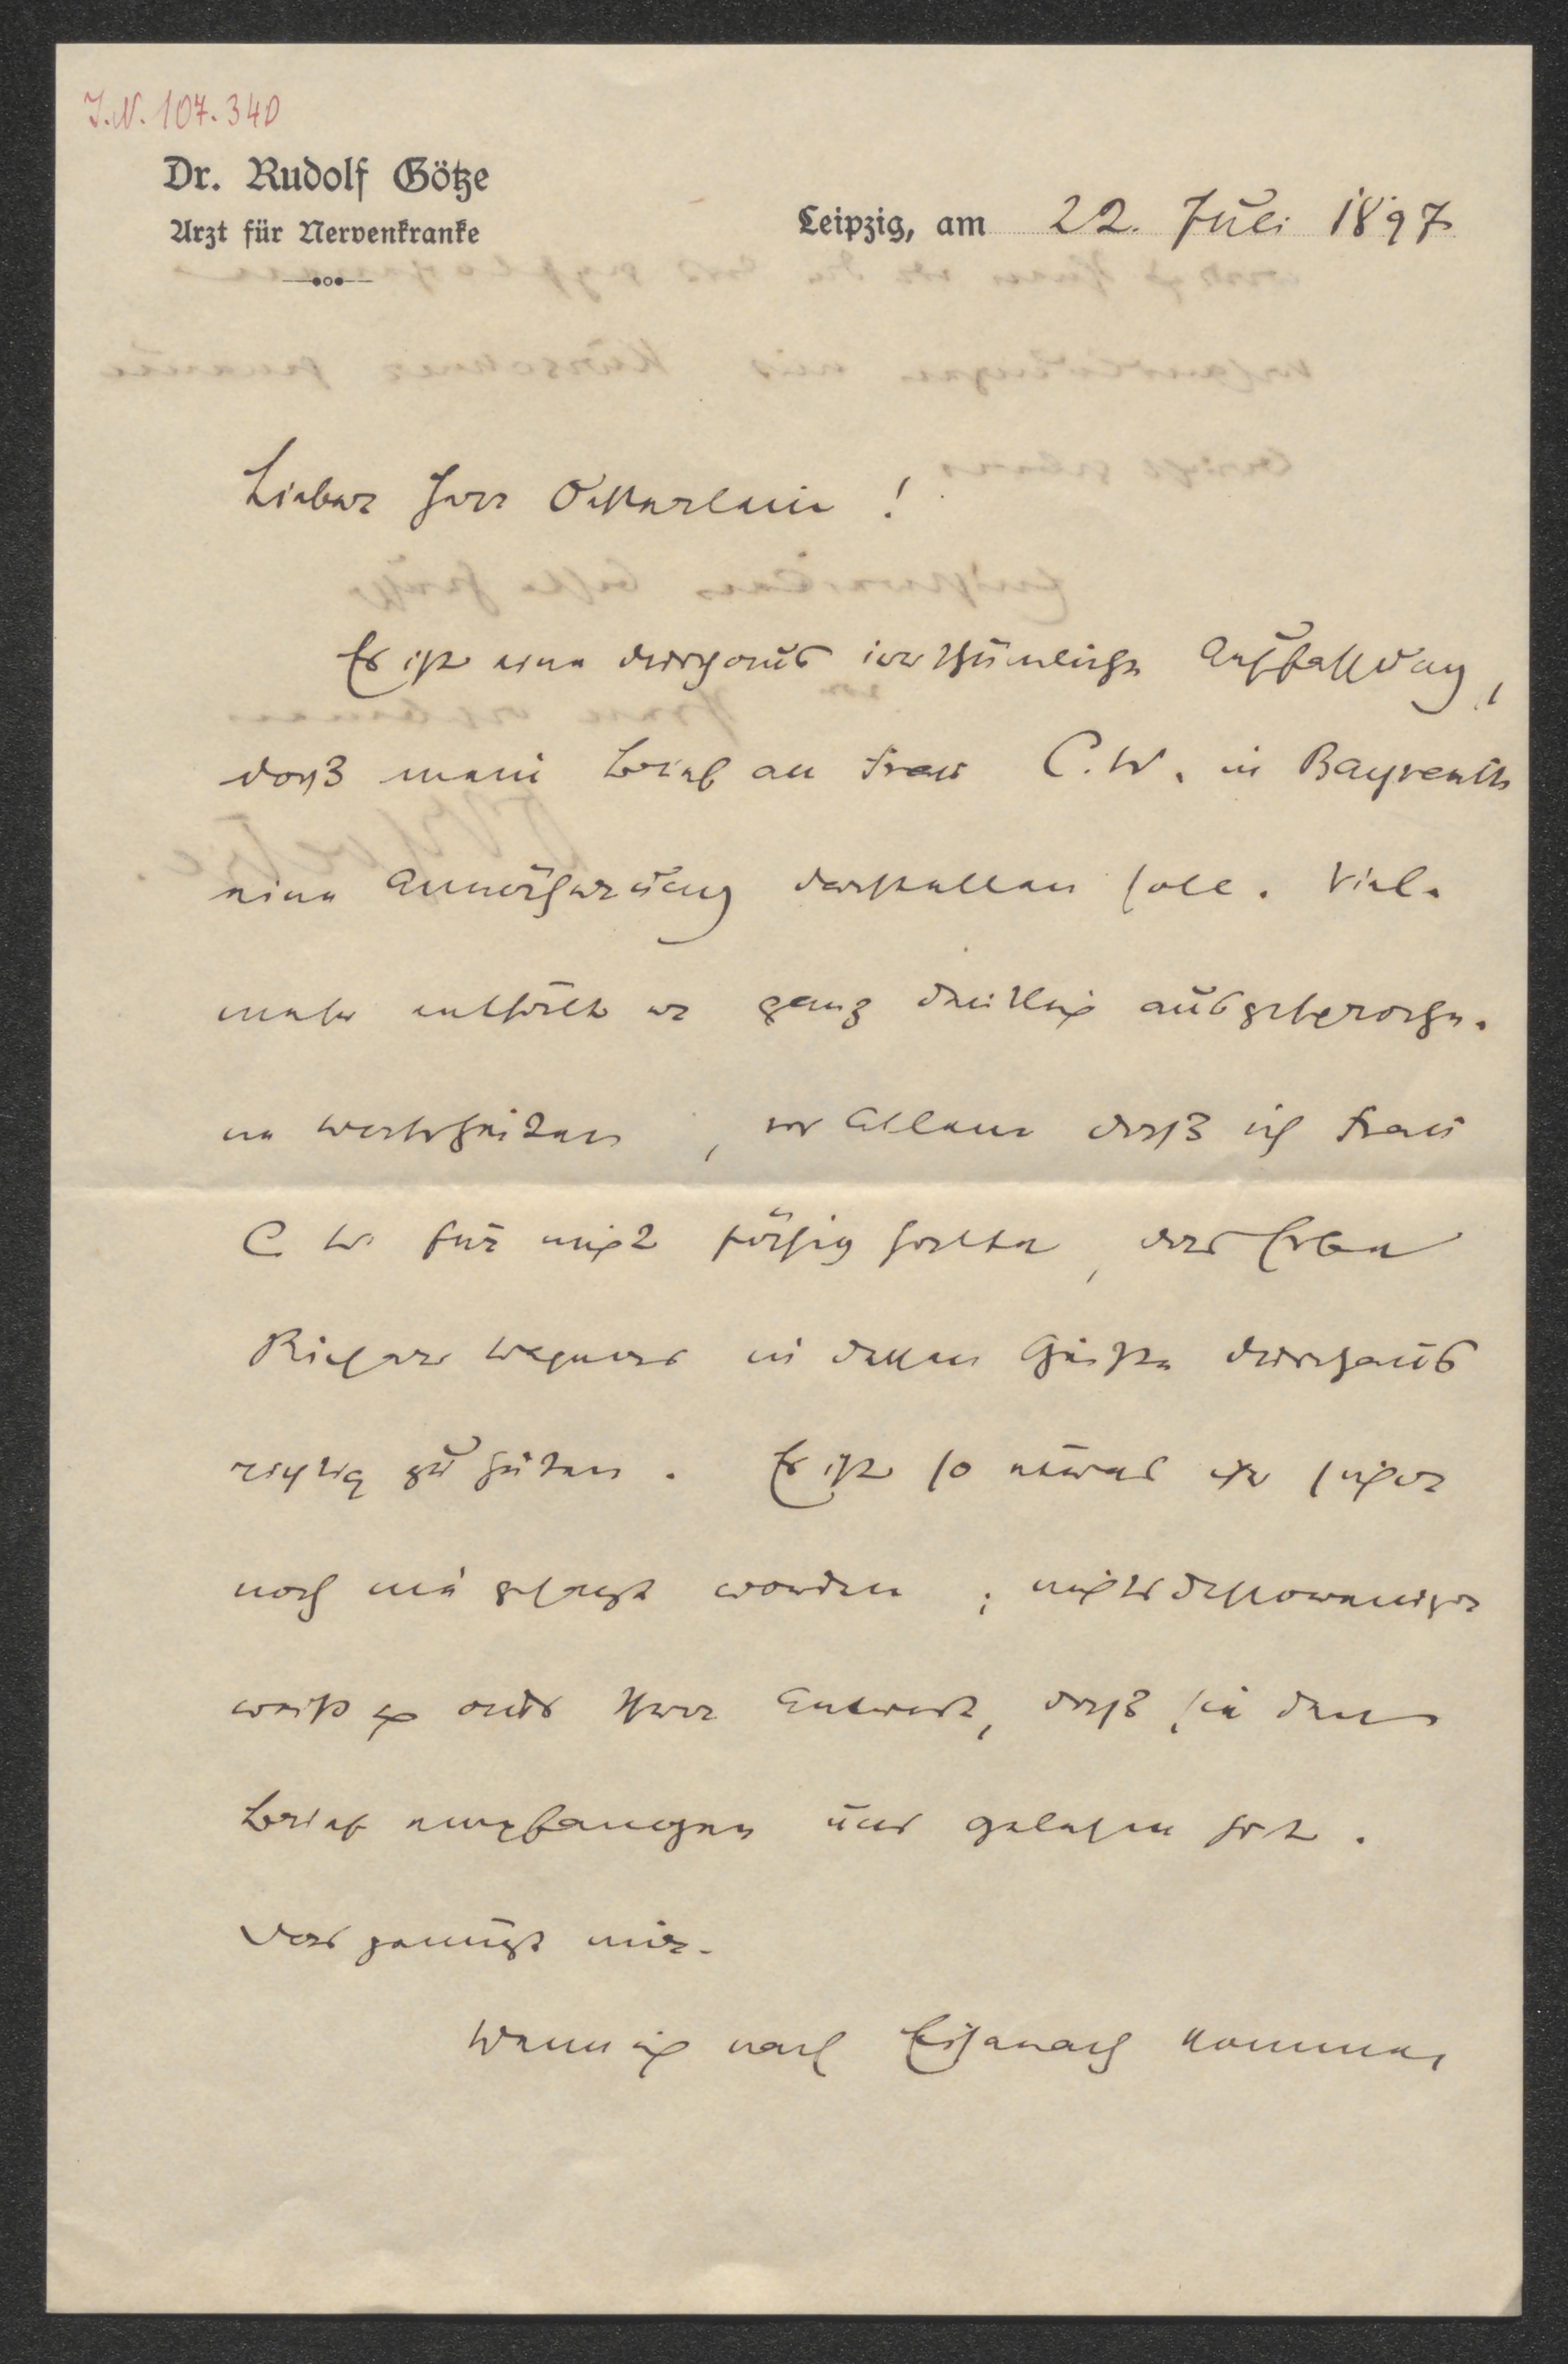 J.N. 107.340
Dr. Rudolf Götze
Arzt für Nervenkranke
Leipzig, am 22. Juli 1897
Lieber Herr Oesterlein!
Es ist eine durchaus irrthümliche Auffassung,
daß mein Brief an Frau C. W. in Bayreuth
eine Annäherung darstellen soll. Viel-
mehr enthielt er ganz deutlich ausgesproche-
ne Wahrheiten, vor Allem daß ich Frau
C W. für nicht fähig halte, das Erbe
Richard Wagners in dessen Geiste durchaus
richtig zu hüten. Es ist so etwas ihr sicher
noch nie gesagt worden; nichtsdestoweniger
weiß ich aus ihrer Antwort, daß sie den
Brief empfangen und gelesen hat.
Das genügt mir.
Wenn ich nach Eisenach komme,